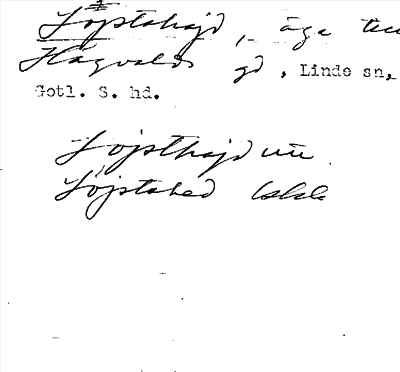 Löjstahajd, äga till
Hägvalds gd, Linde sn,
Gotl. S. hd.
Lojsthajd
Löjstahed